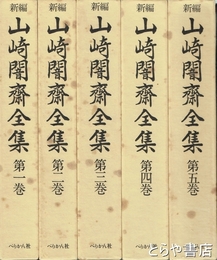 新編
山崎闇齋全集
第一巻
ぺりかん社
新編
山崎闇齋全集
第二巻
ぺりかん社
新編
山崎闇齋全集
第三巻
ぺりかん社
新編
山崎闇齋全集
第四巻
ぺりかん社
新編
山崎闇齋全集
第五巻
とらや書店